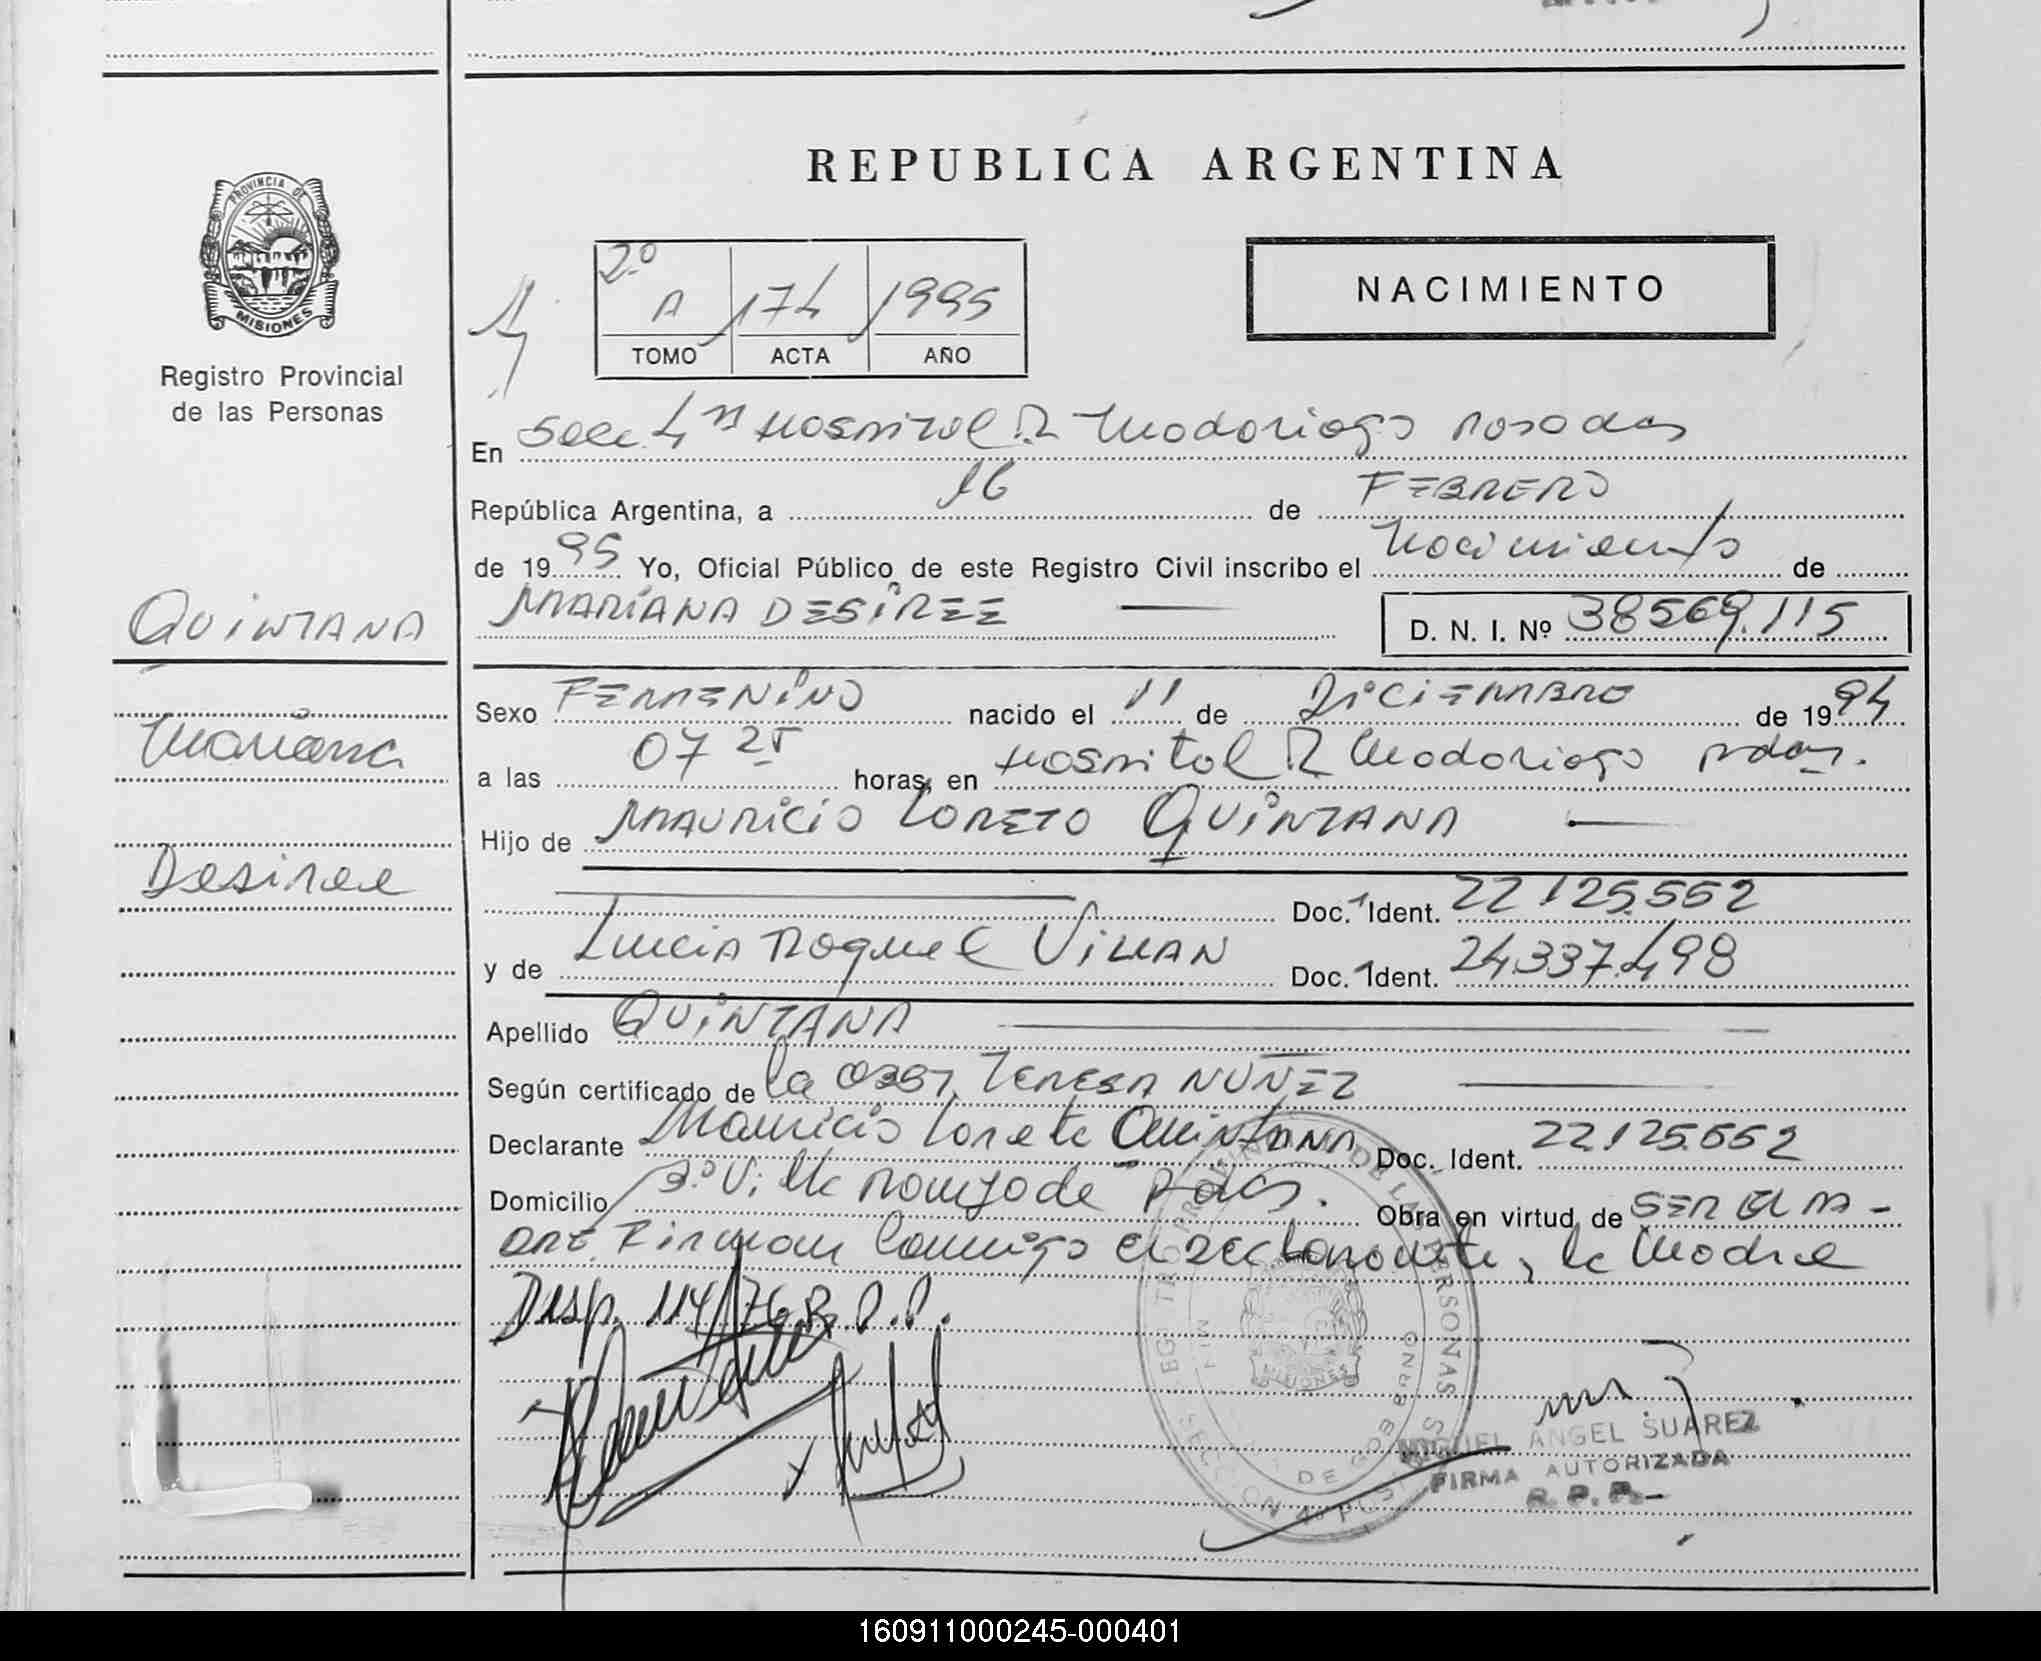 REPUBLICA ARGENTINA
PROVINCIA DE
MISIONES
Registro Provincial
de las Personas
2º
A 174 1995
TOMO ACTA AÑO
NACIMIENTO
En Secc 4ª Hospital R. Madariaga Posadas
República Argentina, a 16 de FEBRERO
de 1995 Yo, Oficial Público de este Registro Civil inscribo el Nacimiento de
MARIANA DESIREE D. N. I. Nº 38569.115
QUINTANA
Mariana
Desiree
Sexo FEMENINO nacido el 11 de DICIEMBRE de 1994
a las 07 25 horas, en Hospital R Madariaga Pdas.
Hijo de MAURICIO LORETO QUINTANA
Doc. Ident. 22.125.552
y de Lucia Raquel VILLAN Doc. Ident. 24.337.498
Apellido QUINTANA
Según certificado de la OBST. TERESA NUÑEZ
Declarante Mauricio Loreto QUINTANA Doc. Ident. 22.125.552
Domicilio Bº Villa Pdas. Obra en virtud de SER EL P
Firman Conmigo el declarante, la Madre
Disp. 114/76 R.P.P.
DE LAS PERSONAS
MISIONES
DE GOBIERNO
MIGUEL ANGEL SUAREZ
FIRMA AUTORIZADA
R. P. P.
160911000245-000401